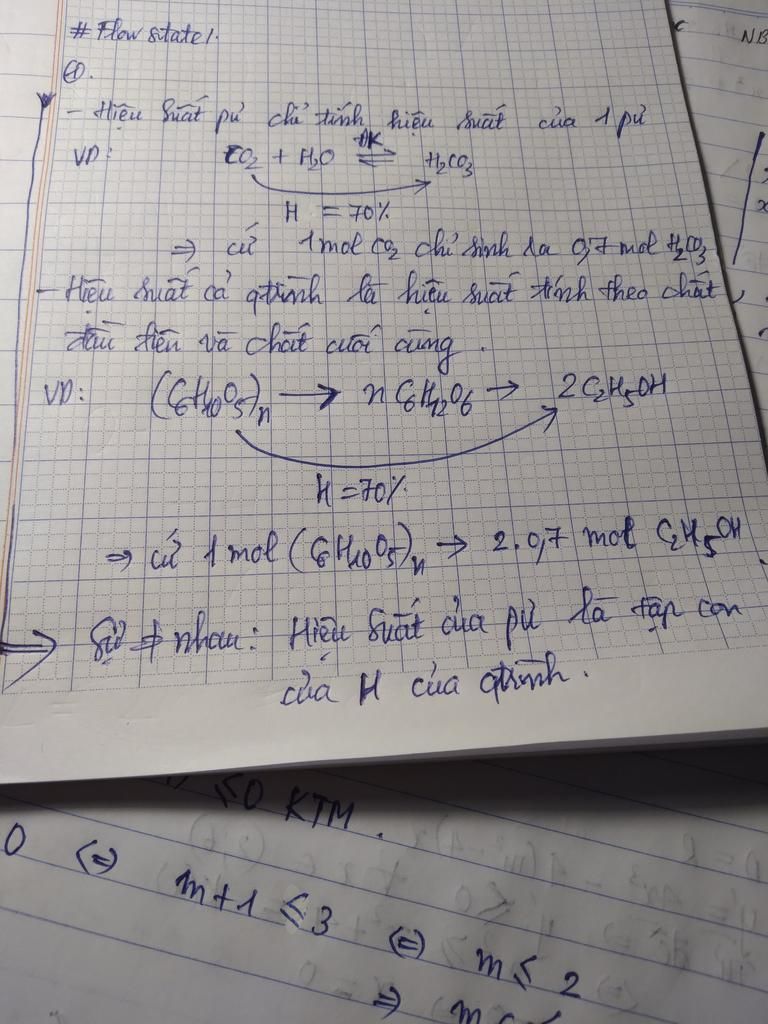 # Flow state 1.
①.
- Hiệu suất pứ chỉ tính hiệu suất của 1 pứ
VD: CO2 + H2O ⇌ H2CO3
ĐK
H = 70%
⇒ cứ 1 mol CO2 chỉ sinh ra 0,7 mol H2CO3
- Hiệu suất cả qtrình là hiệu suất tính theo chất
đầu tiên và chất cuối cùng.
VD: (C6H10O5)n → n C6H12O6 → 2C2H5OH
H = 70%
⇒ cứ 1 mol (C6H10O5)n → 2.0,7 mol C2H5OH
⇒ Sự ≠ nhau: Hiệu suất của pứ là tập con
của H của qtrình.
≤0 KTM.
0 ⇔ m+1 ≤ 3 ⇔ m ≤ 2
⇒
NB